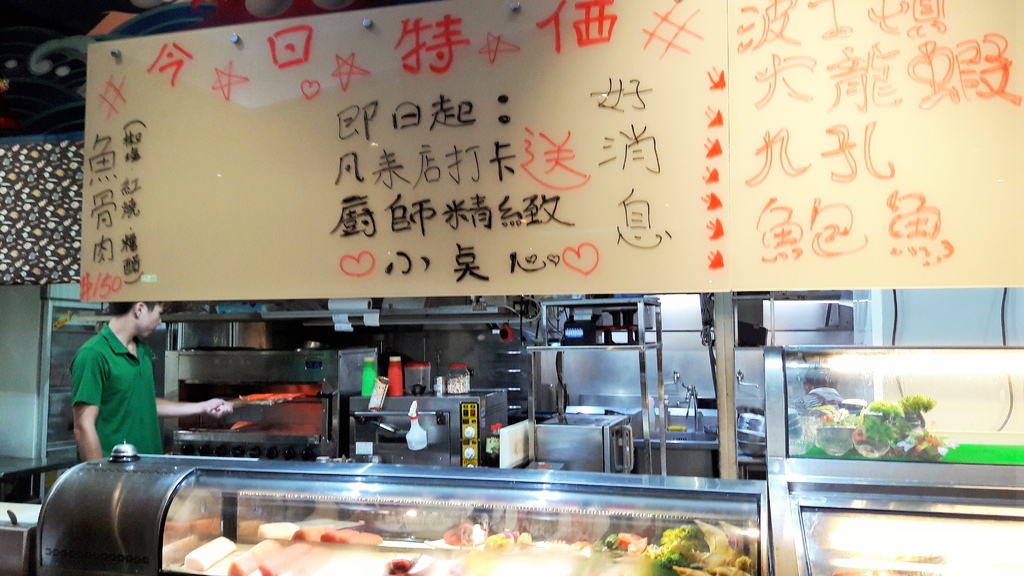 今日特価
魚骨肉
(椒塩.紅燒.糖醋)
$150
好消息
即日起：
凡来店打卡送
廚師精緻
小点心
波士頓
大龍蝦
九孔
鮑魚